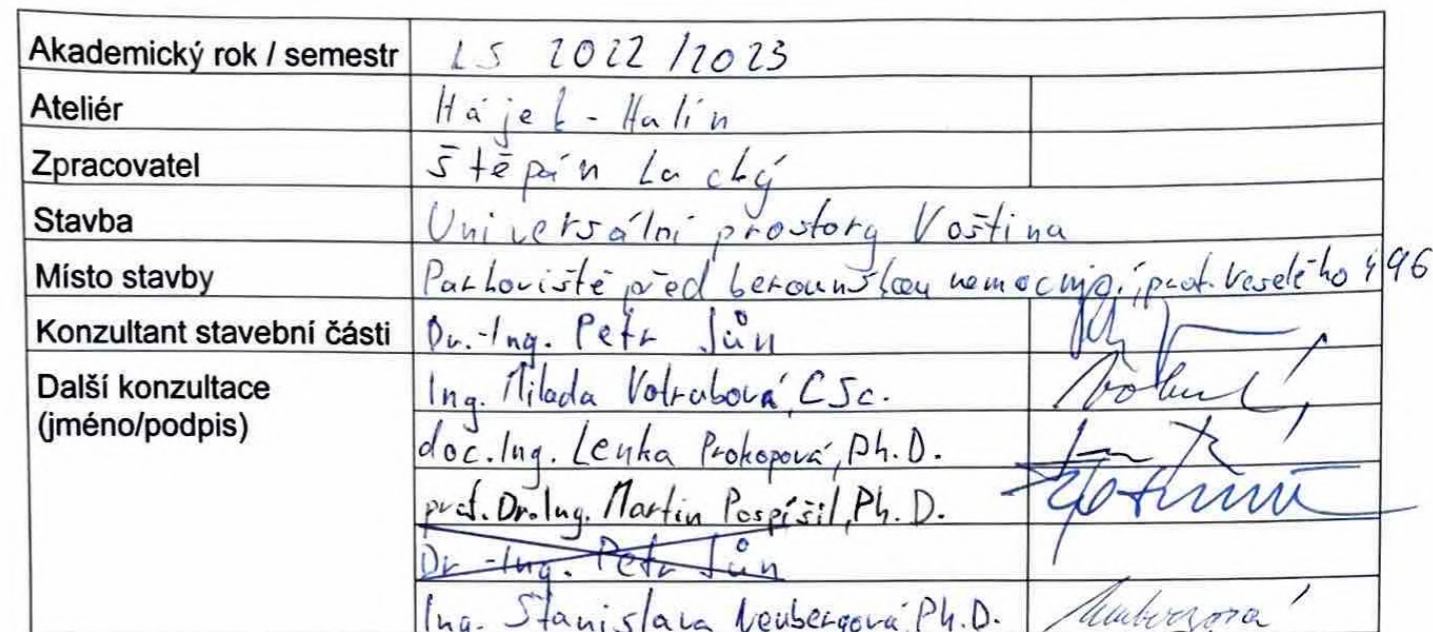 Akademický rok / semestr LS 2022/2023
Ateliér Hájek - Hulín
Zpracovatel Štěpán Lacký
Stavba Universální prostory Voština
Místo stavby Parkoviště před berounskou nemocnicí, prof. Veselého 496
Konzultant stavební části Dr.-Ing. Petr Jůn
Další konzultace Ing. Milada Votrubová, CSc.
(jméno/podpis)
doc. Ing. Lenka Prokopová, Ph.D.
prof. Dr. Ing. Martin Pospíšil, Ph.D.
Dr.-Ing. Petr Jůn
Ing. Stanislava Neubergová, Ph.D. Neubergová